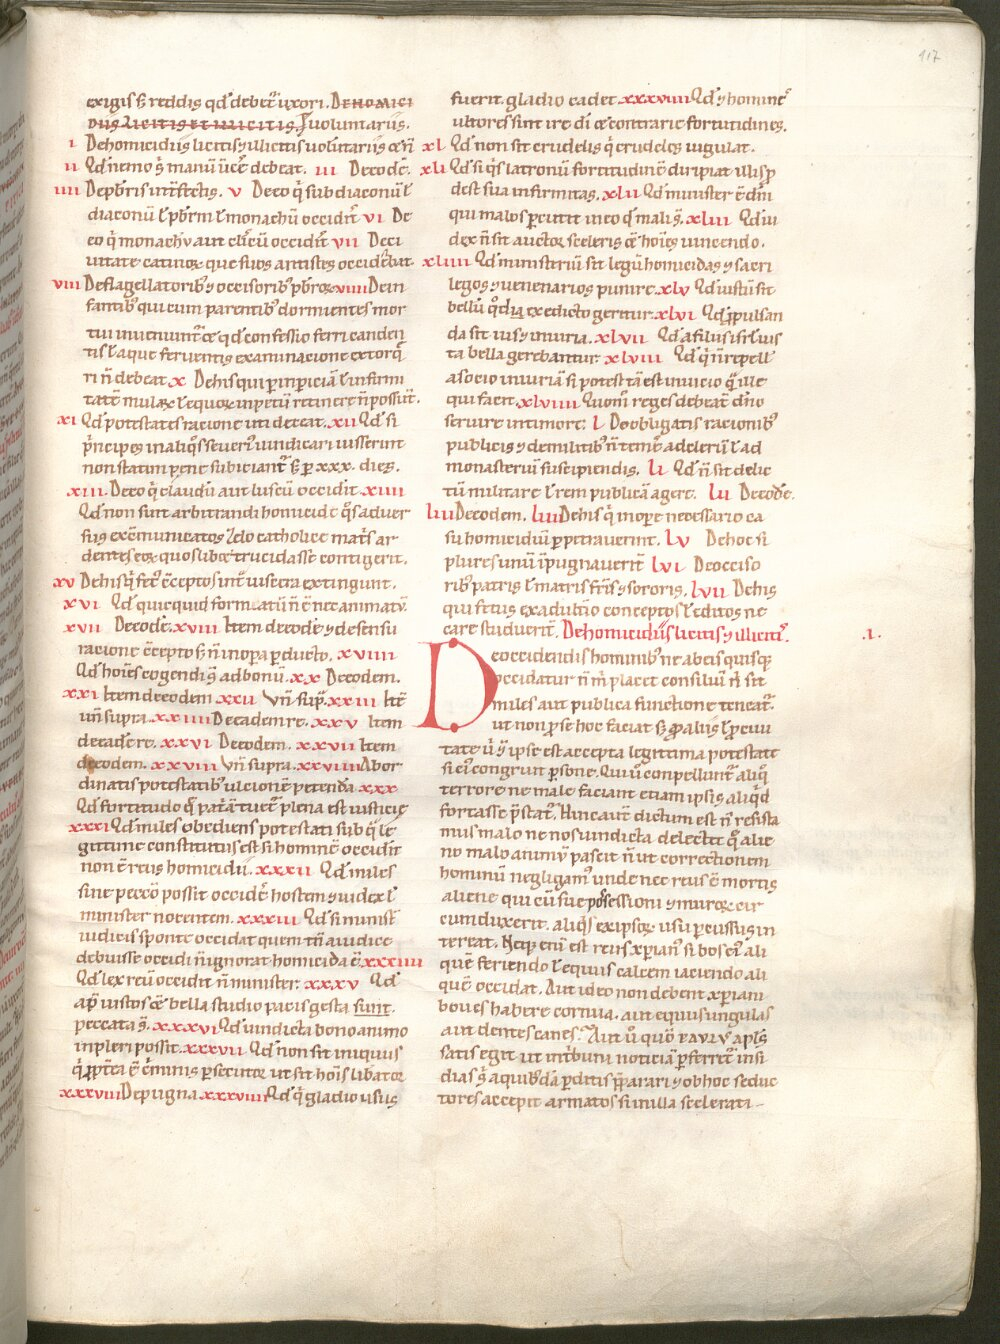 117
exigis s; reddis qđ debet̄ uxori. DE HOMICI
DIIS LICITIS ET ILLICITIS. ſuoluntariis.
I De homicidiis licitis ⁊ illicitis uoluntariis &c̄ n̄
II Qđ nemo s̄ manū ūcē debeat. III De eodē.
IIII De p̄bris int̄fectis. V De eo q̄ subdiaconū ł
diaconū ł p̄brm̄ ł monachū occidit̄ VI De
eo q̄ monachū aut clic̄ū occidit̄ VII De ci
uitate que suos antistes occidebat.
VIII De flagellatorib; ⁊ occisorib; p̄bꝝ VIIII De in
fantib; qui cum parentib; dormientes mor
tui inueniunt̄ et qđ confessio ferri canden
tis ł aque feruentis examinacione extorq̄
ri n̄ debeat X De his qui p inpiciā ł infirmi
tatē mulaꝝ ł equoꝝ inpetū retinere n̄ possūt.
XI Qđ potestates racione uti debeat. XII Qđ si
p̄ncipes in aliq̄s seuerī uindicari iusserint
non statim pene subiciant̄ s; p XXX. dies.
XIII. De eo q̄ claudū aut luscū occidit XIIII
Qđ non sunt arbitrandi homicide q̄ s aduer
sus excm̄unicatos zelo catholice mat̄s ar
dentes eoꝝ quoslibet trucidasse contigerit.
XV De his q̄ fet̄ c̄ceptos int̄ uiscera extingunt.
XVI Qđ quicquid formatū n̄ ē nec animatū
XVII De eodē. XVIII Item de eodē ⁊ defensu
racione c̄cepto s; n̄ in opa pducto. XVIIII
Qđ hoīes cogendi s̄ ad bonū. XX De eodem.
XXI Item de eodem XXII Vn̄ sup̄. XXIII Itē
un̄ supra. XXIIII De eadem re. XXV Item
de eadē re. XXVI De eodem. XXVII Item
de eodem. XXVIII Vn̄ supra. XXVIIII Ab or
dinatis potestatib; ulcione petenda XXX
Qđ fortitudo q̄ pat̄ā tuet̄ plena est iusticie
XXXI Qđ miles obediens potestati sub q̄ le
gittime constitutus est si hominē occidit
non ē reus homicidii. XXXII Qđ miles
sine pecc̄o possit occidē hostem ⁊ iudex ł
minister nocentem. XXXIII Qđ si minist̄
iudicis sponte occidat quem tn̄ a iudice
debuisse occidi n̄ ignorat homicida ē. XXXIIII
Qđ lex reū occidit n̄ minister. XXXV Qđ
ap̄ iustos & bella studio pacis gesta sunt.
peccata s̄. XXXVI Qđ uindicta bono animo
inpleri possit. XXXVII Qđ non sit iniquus
q̄ ꝓpt̄ea ē c̄minis psecutor ut sit hoīs libator
XXXVIII De pugna XXXVIIII Qđ q̄ gladio usus
fuerit gladio cadet XXXVIIII Qđ ⁊ hominē
ultores sint ire dī & contrarie fortitudines.
XL Qđ non sit crudelis q̄ crudeles iugulat.
XLI Qđ si q̄s latronū fortitudinē diripiat illi sp
dest sua infirmitas. XLII Qđ minister ē dn̄i
qui malos pcutit in eo qđ mali s̄. XLIII Qđ iu
dex n̄ sit auctor sceleris & hoīes uincendo.
XLIIII Qđ ministeriū sit legū homicidas ⁊ sacri
legos ⁊ uenenarios punire. XLV Qđ iustū sit
bellū qđ ex edicto geritur. XLVI Qđ p̄pulsan
da sit iusⁱ ⁊ iniuria. XLVII Qđ a filiis isrł ius
ta bella gerebantur. XLVIII Qđ q̄ n̄ repell̄
a socio iniuriā si potest tā est in uicio q̄ ille
qui facit. XLVIIII Quom̄ reges debeāt dn̄o
seruire in timore. L De obligatis racionib;
publicis ⁊ de militib; n̄ temē ad clerū ł ad
monasteriū suscipiendis. LI Qđ n̄ sit delic
tū militare ł rem publicā agere. LII De eodē.
LIII De eodem. LIIII De his q̄ in ope necessario ca
su homicidiū ppetrauerint. LV De hoc si
plures unū īpugnauerīt LVI De occiso
rib; patris ł matris fr̄is ⁊ sororis. LVII De his
qui fetus ex adultio conceptos ł editos ne
care studuerīt. De homicidiis licitis ⁊ illicit̄. .I.
De occidendis hominib; ne ab eis quisq̄
occidatur n̄ m placet consiliū n̄ sit
miles aut publica functione teneat̄.
ut non p se hoc faciat s; ꝓ aliis ł ꝓ ciui
tate ū ⁊ ipse est accepta legittima potestate
si eī congruit psone. Qui ū conpellunt̄ aliq̄
terrore ne male faciant etiam ipsis aliq̄d
fortasse p̄stat̄. Hinc aut̄ dictum est n̄ resista
mus malo ne nos uindicta delectet q̄ alie
no malo animū pascit n̄ ut correctionem
hominū negligam̄ unde nec reus ē mortis
aliene qui cū sue possessioni ⁊ muros cir
cumduxerit. aliq̄s ex ipsoꝝ usu pcussus in
tereat. Neq; enī est reus xp̄ian̄ si bos eī ali
quē feriendo ł equus calcem iaciendo ali
quē occidat. Aut ideo non debent xp̄iani
boues habere cornua. aut equus ungulas
aut dentes canes. Aut ū quō PAVLV apl̄s
satis egit ut in t̄buni noticiā pferret̄ insi
dias s̄ a quib;dā pditis p̄parari ⁊ ob hoc deduc
tores accepit armatos si in illa scelerati-